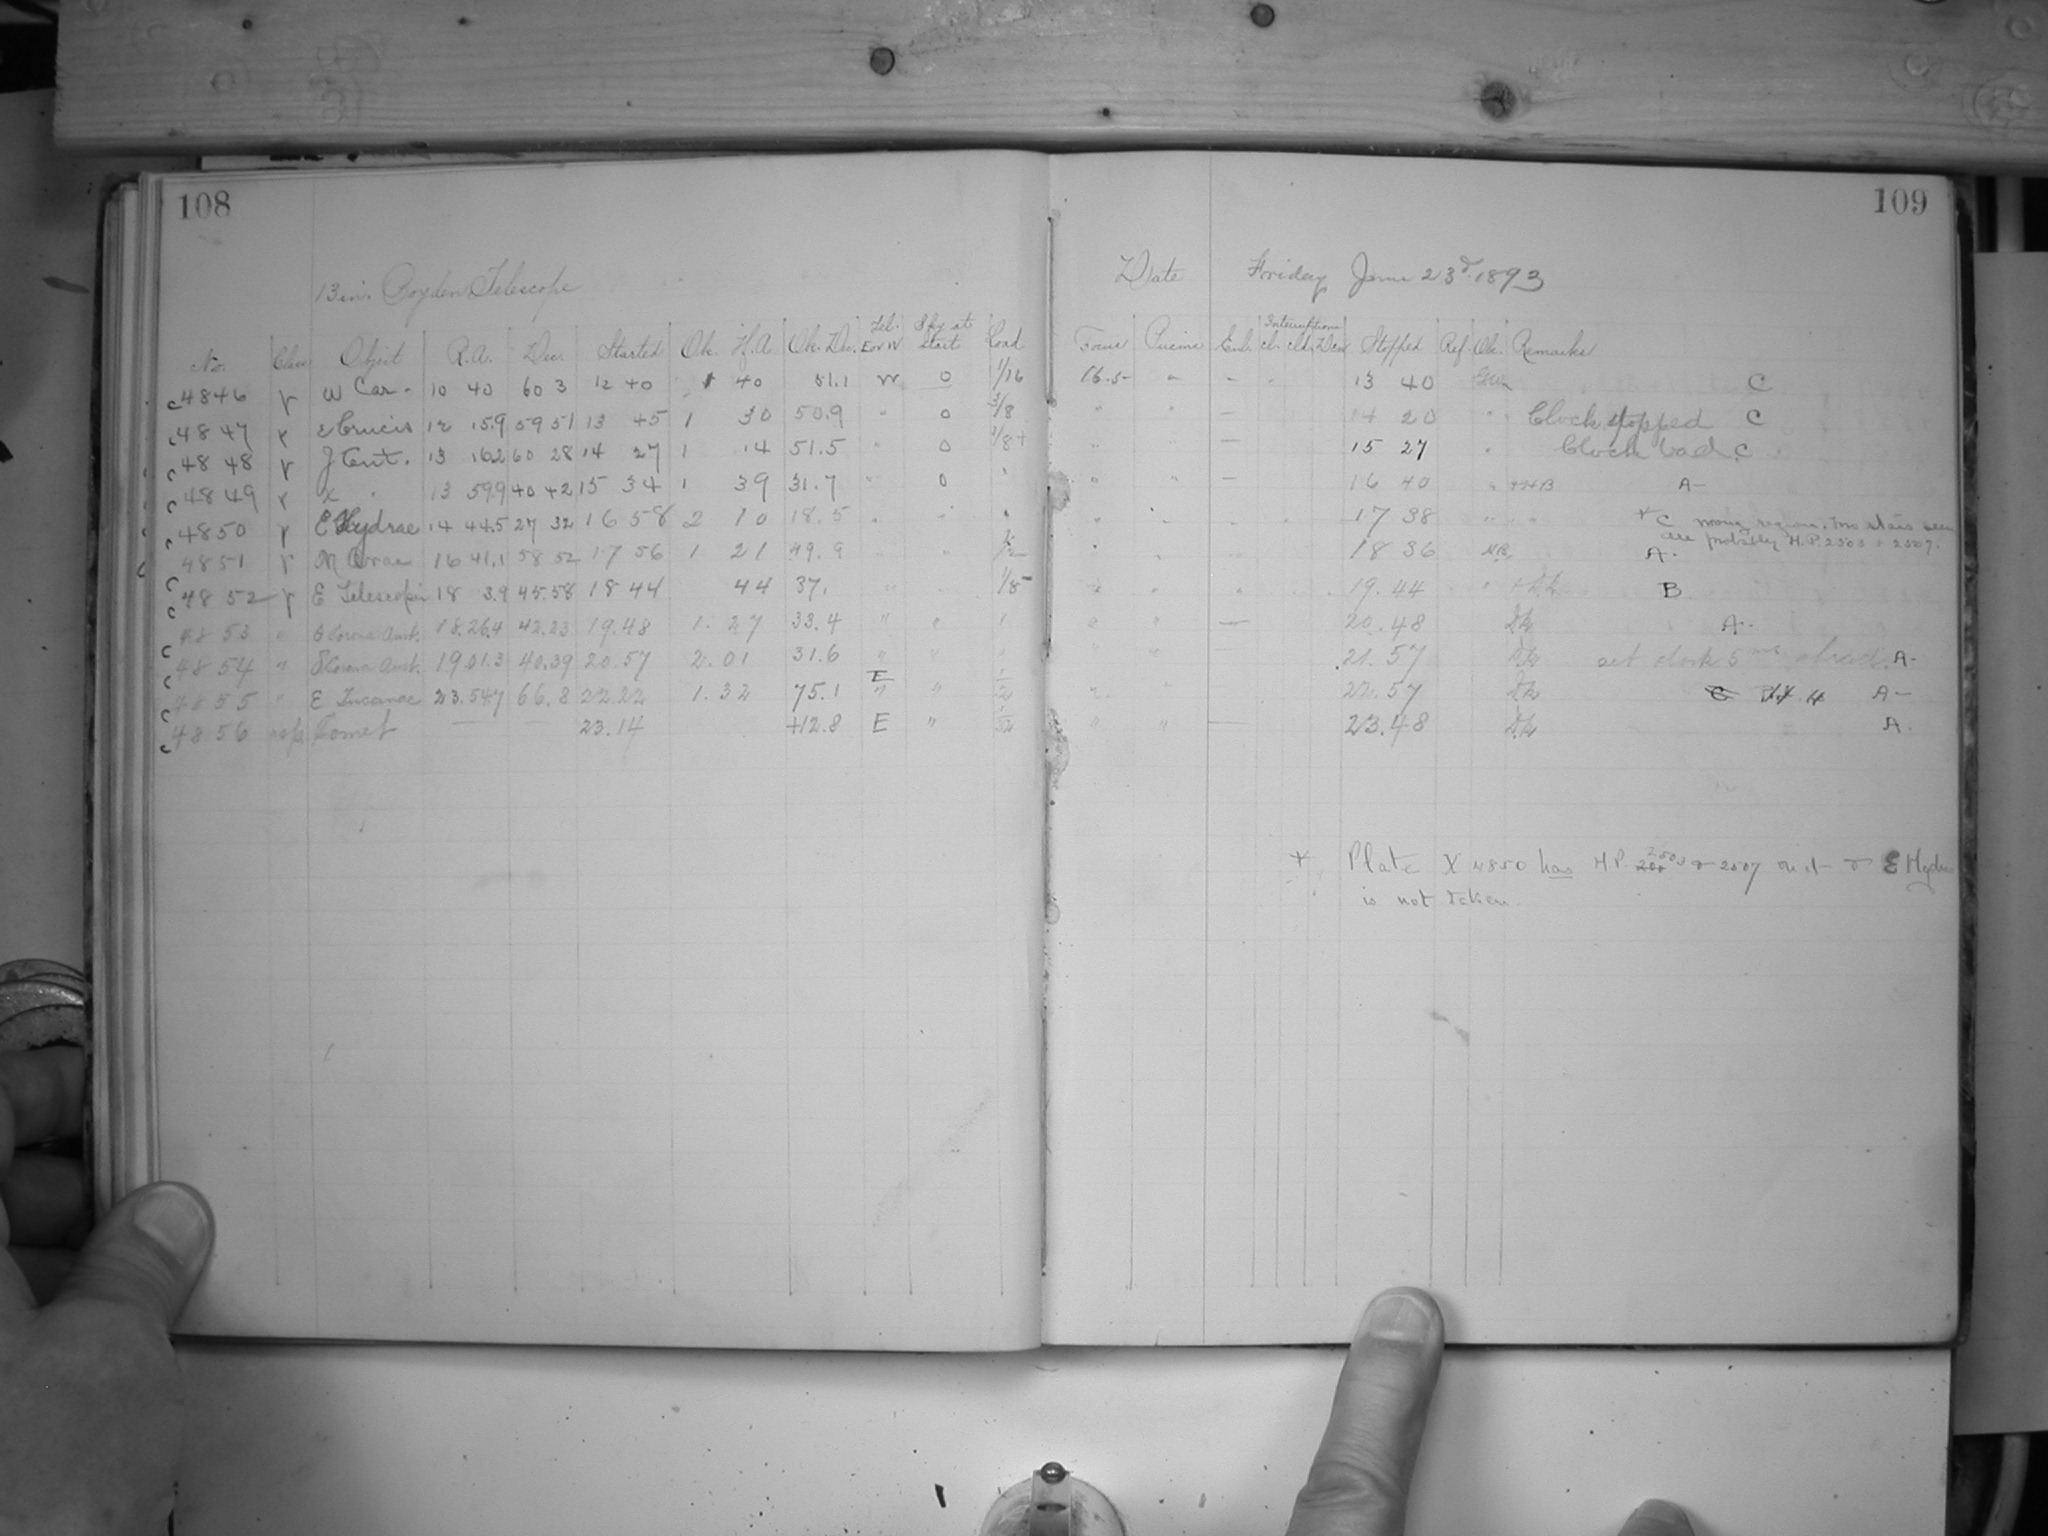 108
109
13 in. Boyden Telescope
Date Friday June 23d 1893
No. Class Object R.A. Dec. Started Ob. H.A. Ob. Dec. Tel. E or W Sky at start Load Focus Prisms Enl. Interruptions cl. cld. Dew Stopped Ref. Ob. Remarks
4846 r w Car. 10 40 60 3 12 40 40 51.1 W 0 1/16 16.5 " - 13 40 C
4847 r ε Crucis 12 15.9 59 51 13 45 1 30 50.9 " 0 3/8 " " - 14 20 " Clock stopped C
4848 r J Cent. 13 16.2 60 28 14 27 1 14 51.5 " 0 1/8+ " - 15 27 " Clock bad. C
4849 r χ " 13 59.9 40 42 15 34 1 39 31.7 " 0 " " " - 16 40 " A-
4850 r E Hydrae 14 44.5 27 32 16 58 2 10 18.5 " " " " " 17 38 " " * C wrong region. Two stars seen
are probably H.P. 2503 + 2507.
4851 r Arae 16 41.1 58 52 17 56 1 21 49.9 " " 1/2 " " 18 36 A-
4852 r E Telescopii 18 3.9 45.58 18 44 44 37. " " 1/8 " " 19.44 " B
4853 " θ Corona Aust. 18.26.4 42.23 19.48 1.27 33.4 " " " " " — 20.48 A-
4854 " δ Corona Aust. 19 01.3 40.39 20.57 2.01 31.6 " " " " " 21.57 set clock 5 ms ahead. A-
4855 " E Tucanae 23.54.7 66.8 22.22 1.32 75.1 E " " 22.57 A-
4856 Comet — — 23.14 +12.8 E " " " — 23.48 A.
* Plate X 4850 has H.P. 2503 & 2507 on it & E Hydrae
is not taken.